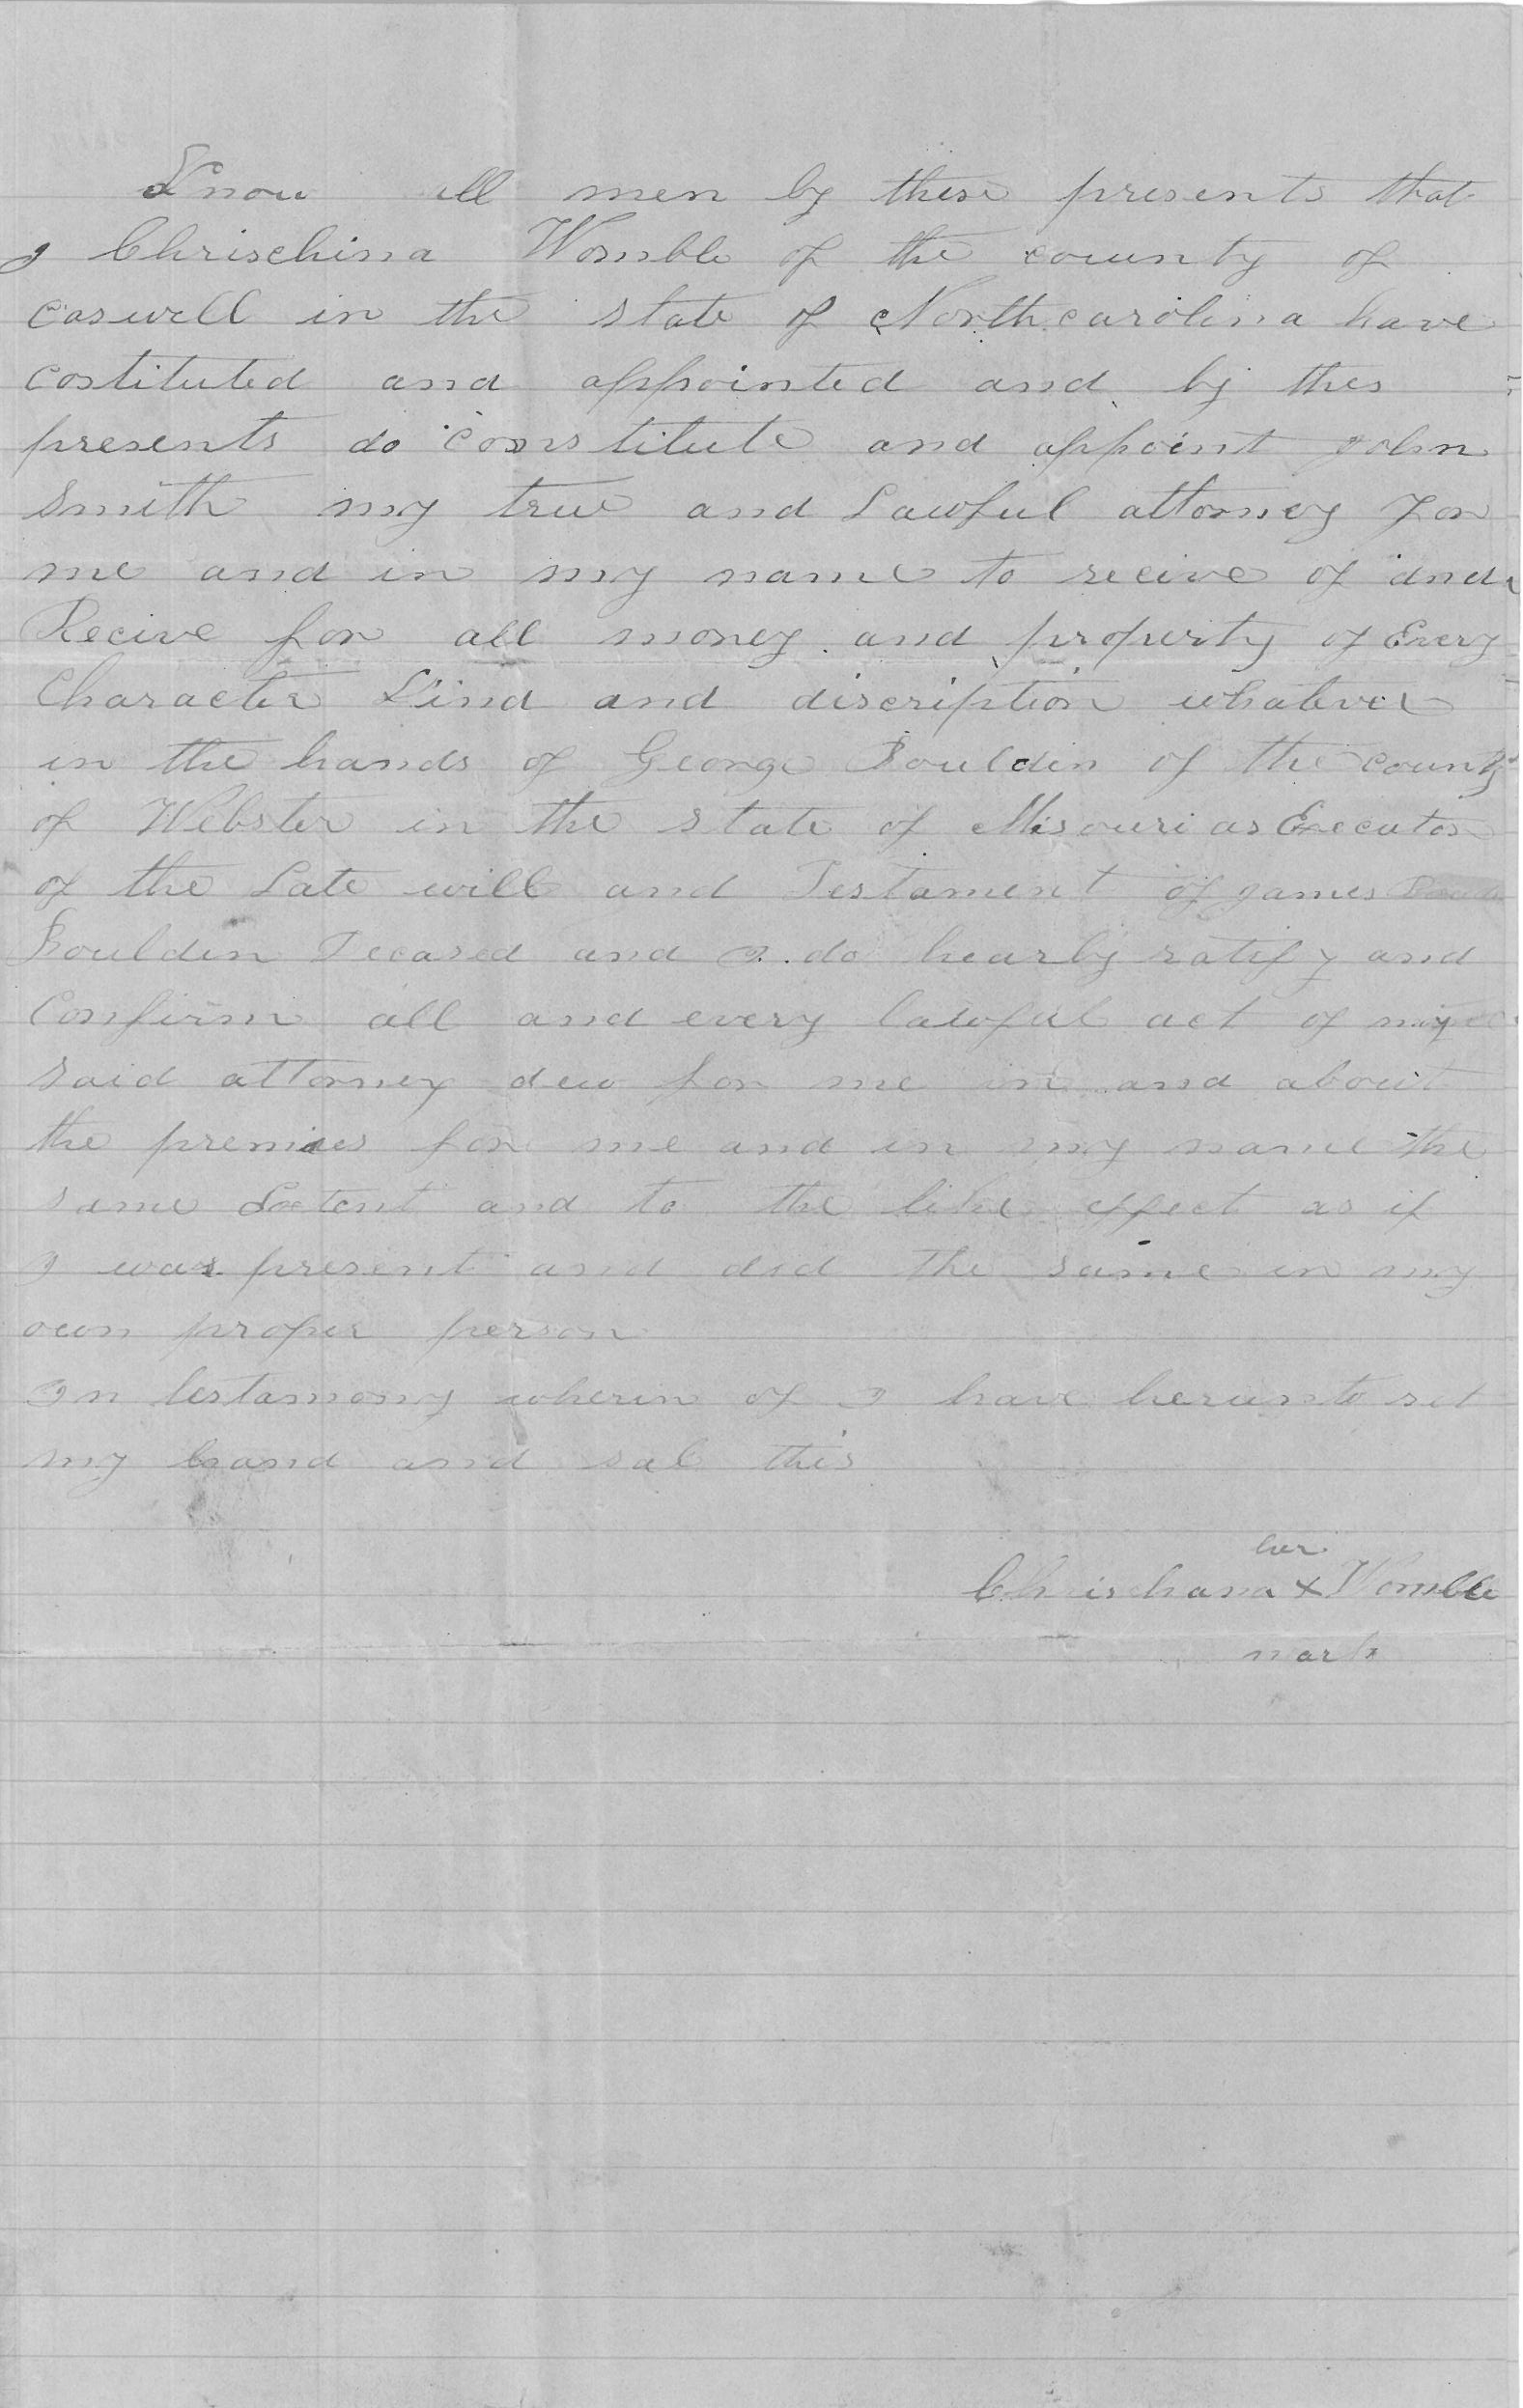 Know all men by these presents that
I Chrischina Womble of the county of
caswell in the state of North carolina have
costituted and appointed and by thes
presents do constitute and appoint John
Smith my true and Lawful attorney for
me and in my name to recive of and
Recive for all money and property of Every
Character Kind and discription whatever
in the hands of George Bouldin of the county
of Webster in the state of Misouri as Executor
of the Late will and Testament of James
Bouldin Decased and I do hearby ratify and
Confirm all and every lawful act of my
said attorney dew for me in and about
the premises for me and in my name the
same Extent and to the like effect as if
I was present and did the same in my
own proper person
In testamony wherin of I have herunto set
my hand and seal this
her
Chrischana X Womble
mark